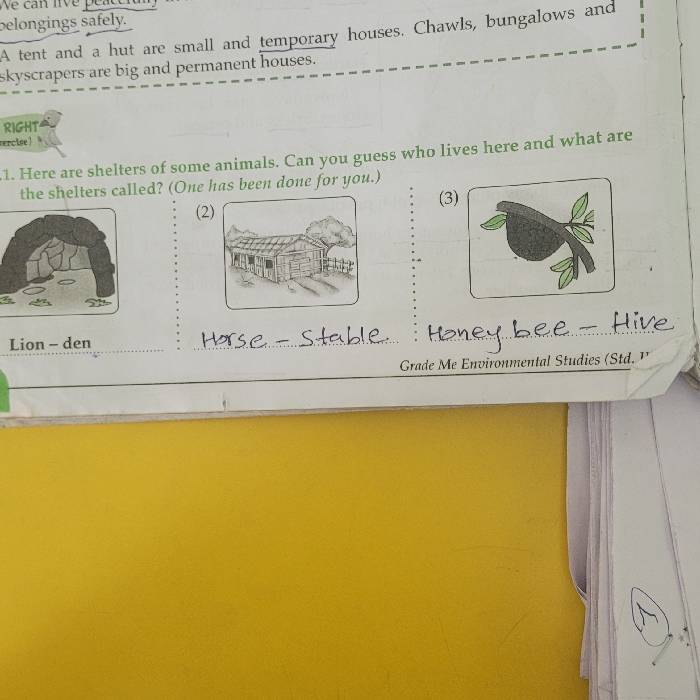 We can live
belongings safely.
A tent and a hut are small and temporary houses. Chawls, bungalows and
skyscrapers are big and permanent houses.
RIGHT
1. Here are shelters of some animals. Can you guess who lives here and what are
the shelters called? (One has been done for you.)
(2)
(3)
Lion – den
Horse – Stable
Honey bee – Hive
Grade Me Environmental Studies (Std.
1